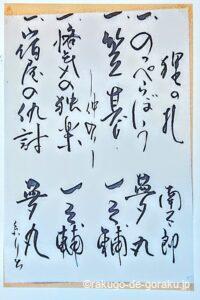 狸の札 南太郎
一、のっぺらぼう 夢丸
一、笠碁 一之輔
―仲入り―
一、悋気の独楽 一之輔
一、宿屋の仇討 夢丸
©rakugo-de-goraku.